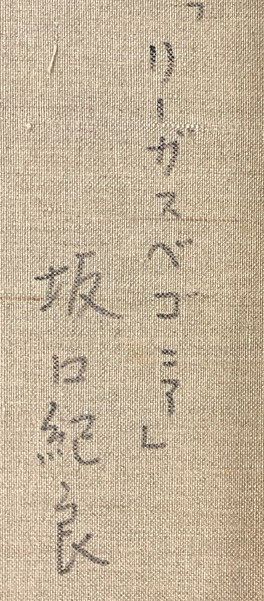 「リーガスベゴニア」
坂口紀良